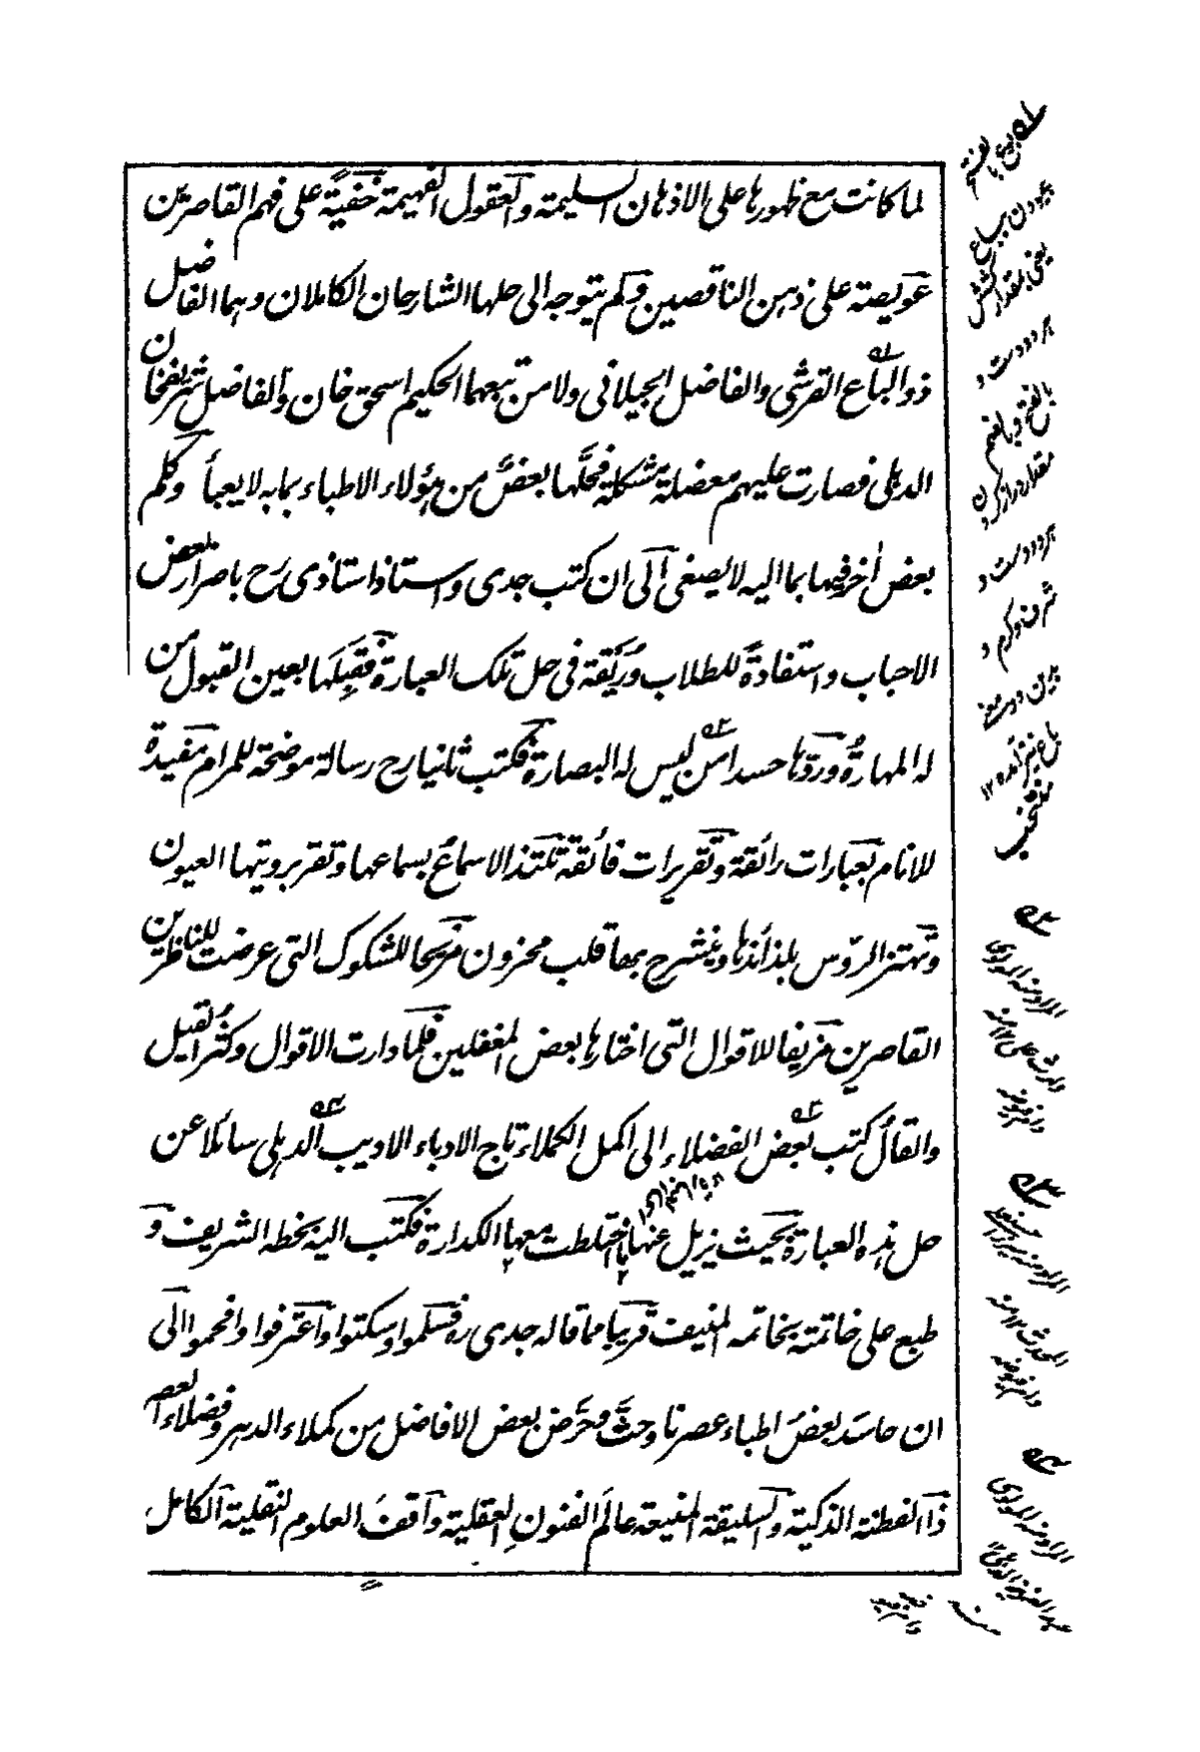 لما كانت مع ظهورها على الاذهان السليمة والعقول الفهيمة خفيةً على فهم القاصرين
عويصة على ذهن الناقصين ولم يتوجه الى حلها الشارحان الكاملان وهما الفاضل
ذو الباع القرشى والفاضل الجيلانى ولا من تبعهما الحكيم اسحق خان والفاضل شريفخان
الدهلى فصارت عليهم معضلة مشكلة فحلَّها بعضٌ من هؤلاء الاطباء بما به لا يعبأ وكلم
بعض اخر فيها بما اليه لا يصغى الى ان كتب جدى واستاذ استاذى رح باصرار بعض
الاحباب واستفادةً للطلاب وُرَيْقة فى حل تلك العبارة فقَبِلَها بعين القبول من
له المهارةُ وردّها حسدا من ليس له البصارة فكتب ثانيا رح رسالة موضحة للمرام مفيدة
للانام بعبارات رائقة وتقريرات فائقة تلتذ الاسماعُ بسماعها وتقر برويتها العيون
وتهتز الرؤس بلذائذها وينشرح بها قلب محزون مزيحا للشكوك التى عرضت للناظرين
القاصرين مزيفا للاقوال التى اختارها بعض المغفلين فلما دارت الاقوال وكثُر القيل
والقال كتب بعض الفضلاء الى اكمل الكملاء تاج الادباء الاديب الدهلى سائلا عن
حل هذه العبارة بحيث يزيل عنها ما اختلطت معها الكدارة فكتب اليه بخطه الشريف و
طبع على خاتمته بخاتمه المنيف قريبا مما قاله جدى ره فسلموا وسكتوا واعترفوا وافحموا الى
ان حاسَد بعضُ اطباء عصرنا وحثَّ وحرّض بعض الافاضل من كملاء الدهر وفضلاء العصر
ذا الفطنة الذكية والسليقة المنيعة عالَم الفنونِ العقلية واقفَ العلوم النقلية الكامل
بوع بالضم
پیمودن بباع
یعنی بمقدار کشش
هر دو دست و
بالفتح و بالضم
مقدار دراز کردن
هر دو دست و
شرف و کرم و
منتخب
المراد منه المولوى
المراد منه المولوى